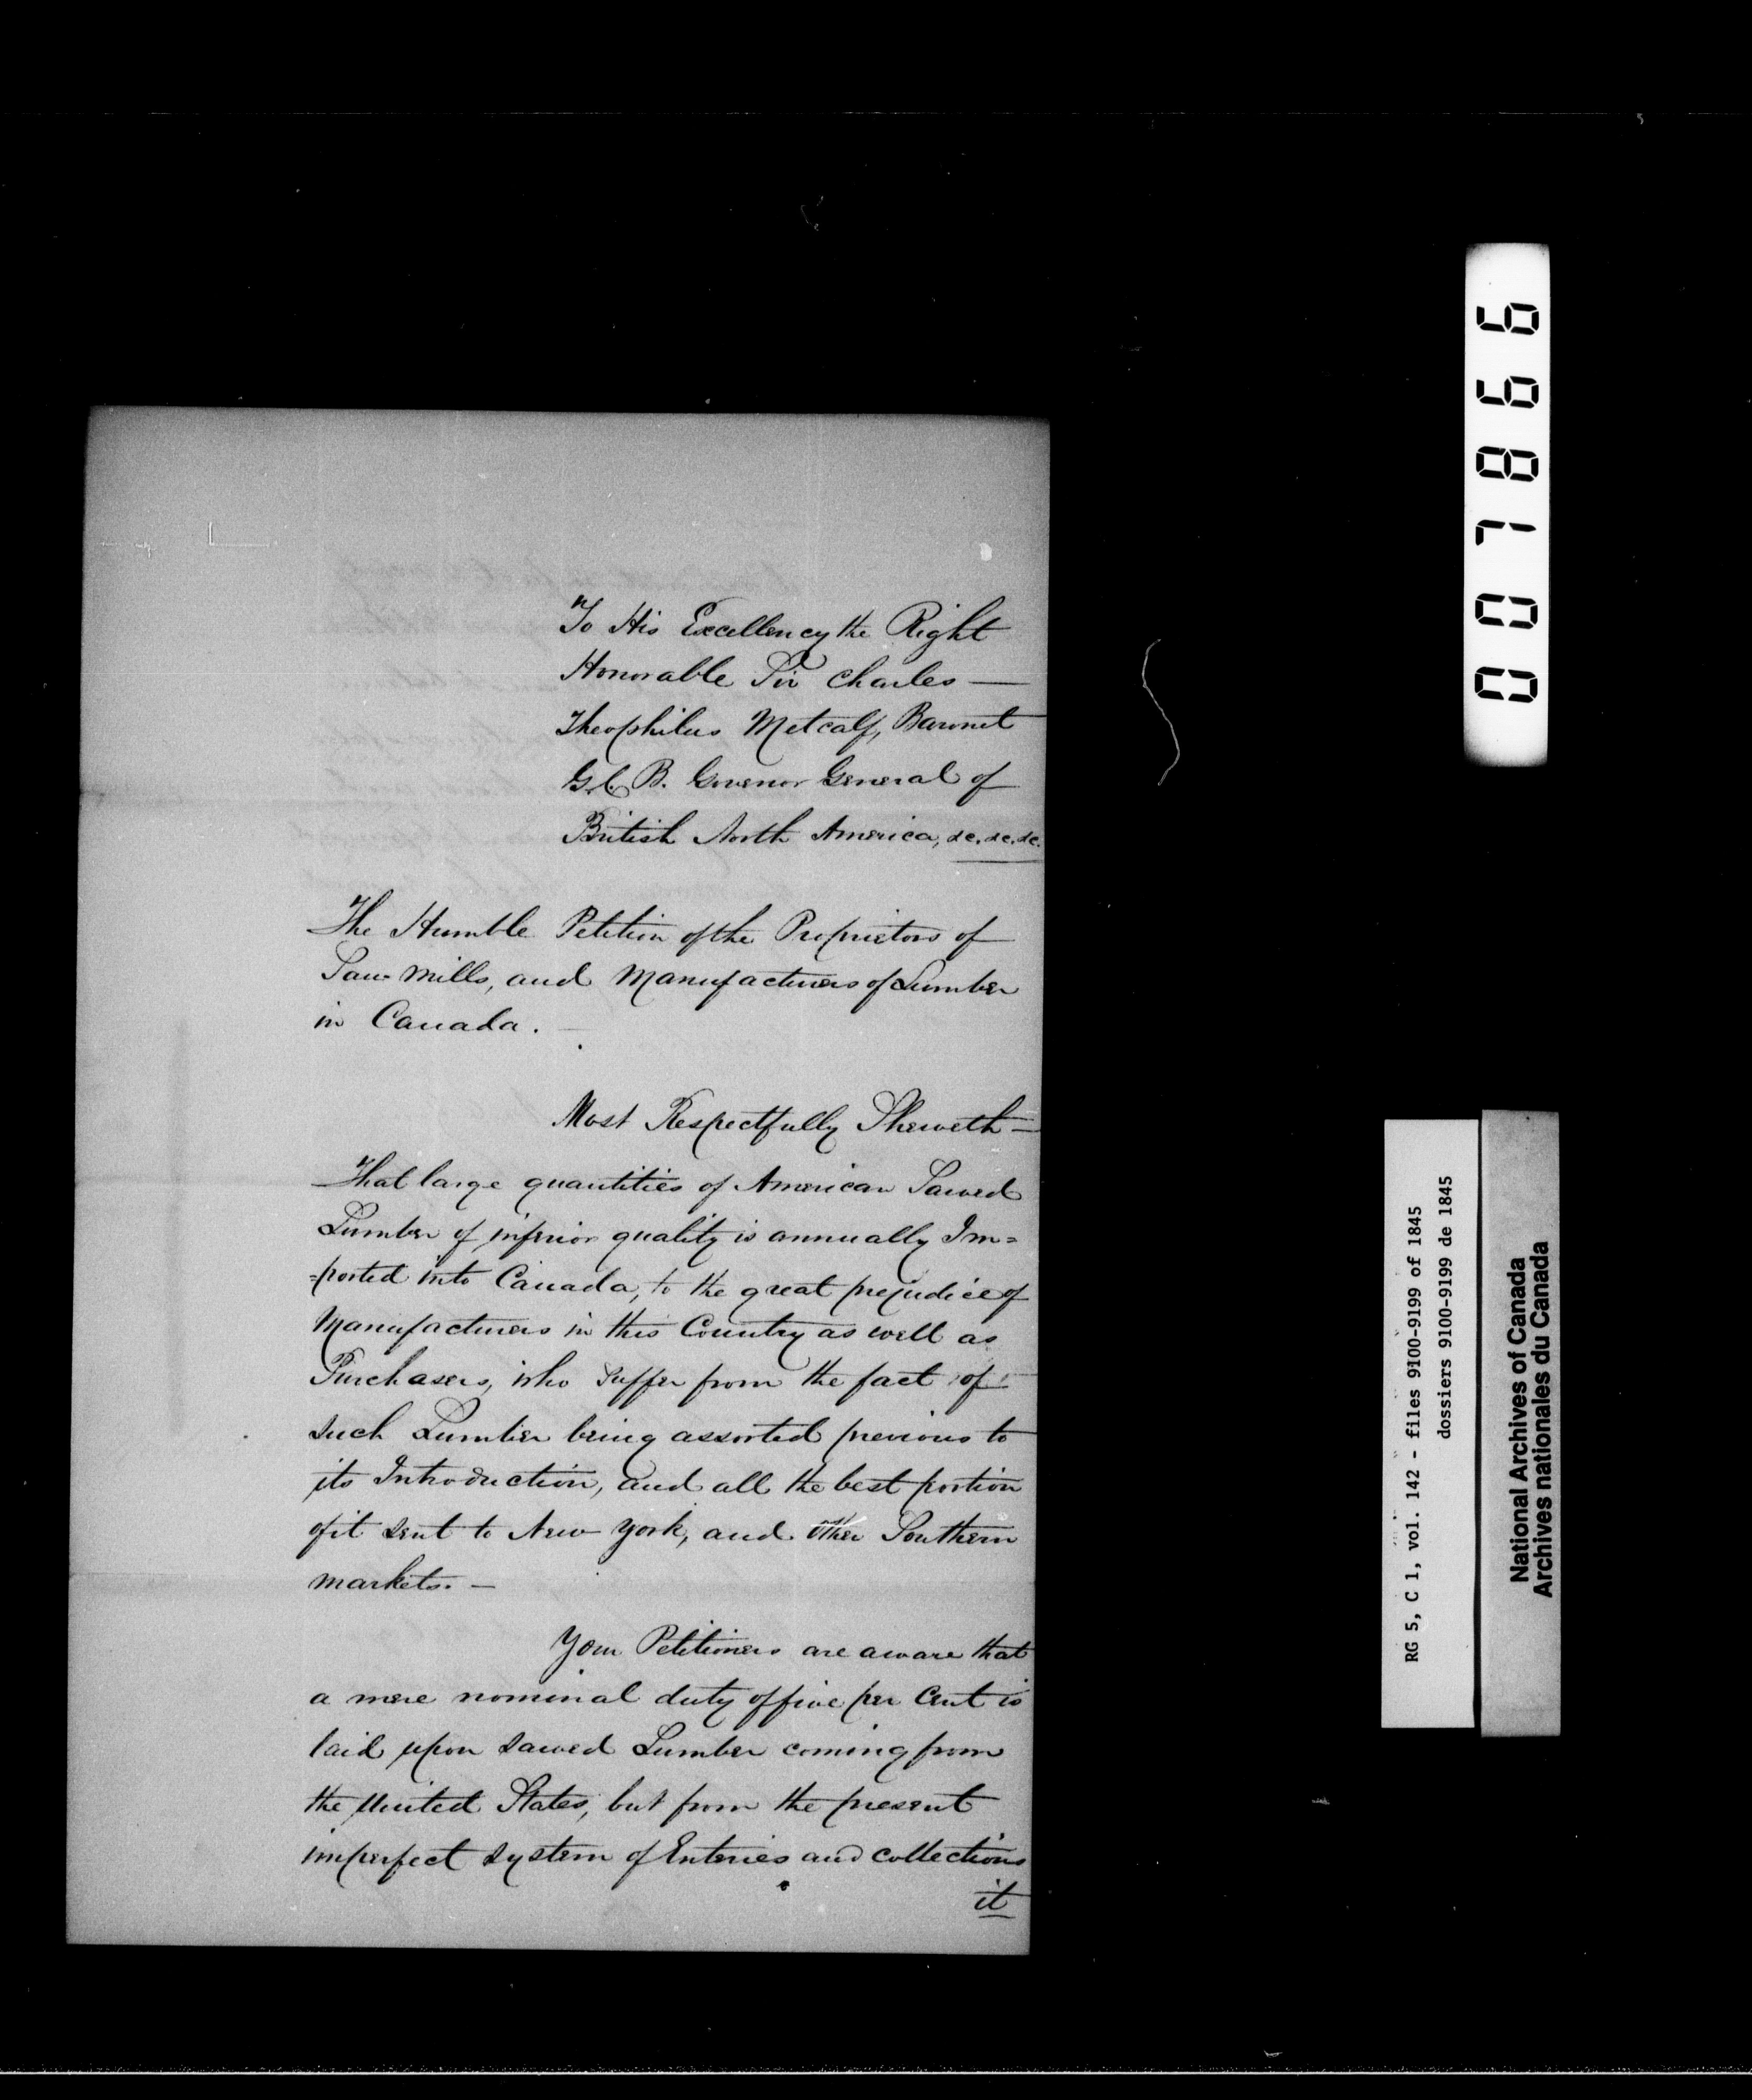 To His Excellency the Right
Honorable Sir Charles —
Theophilus Metcalf, Baronet
G.C.B. Govenor General of
British North America, &c. &c. &c.
The Humble Petition of the Proprietors of
Saw Mills, and Manufacturers of Lumber
in Canada. —
Most Respectfully Sheweth —
That large quantities of American Sawed
Lumber of inferior quality is annually Im=
=ported into Canada, to the great prejudice of
Manufacturers in this Country as well as
Purchasers, who suffer from the fact of
such Lumber being assorted previous to
its Introduction, and all the best portion
of it sent to New York, and other Southern
markets. —
Your Petitioners are aware that
a mere nominal duty of five per Cent is
laid upon sawed Lumber coming from
the United States, but from the present
imperfect system of Enteries and collections
it
007866
RG 5, C 1, vol. 142 - files 9100-9199 of 1845
dossiers 9100-9199 de 1845
National Archives of Canada
Archives nationales du Canada